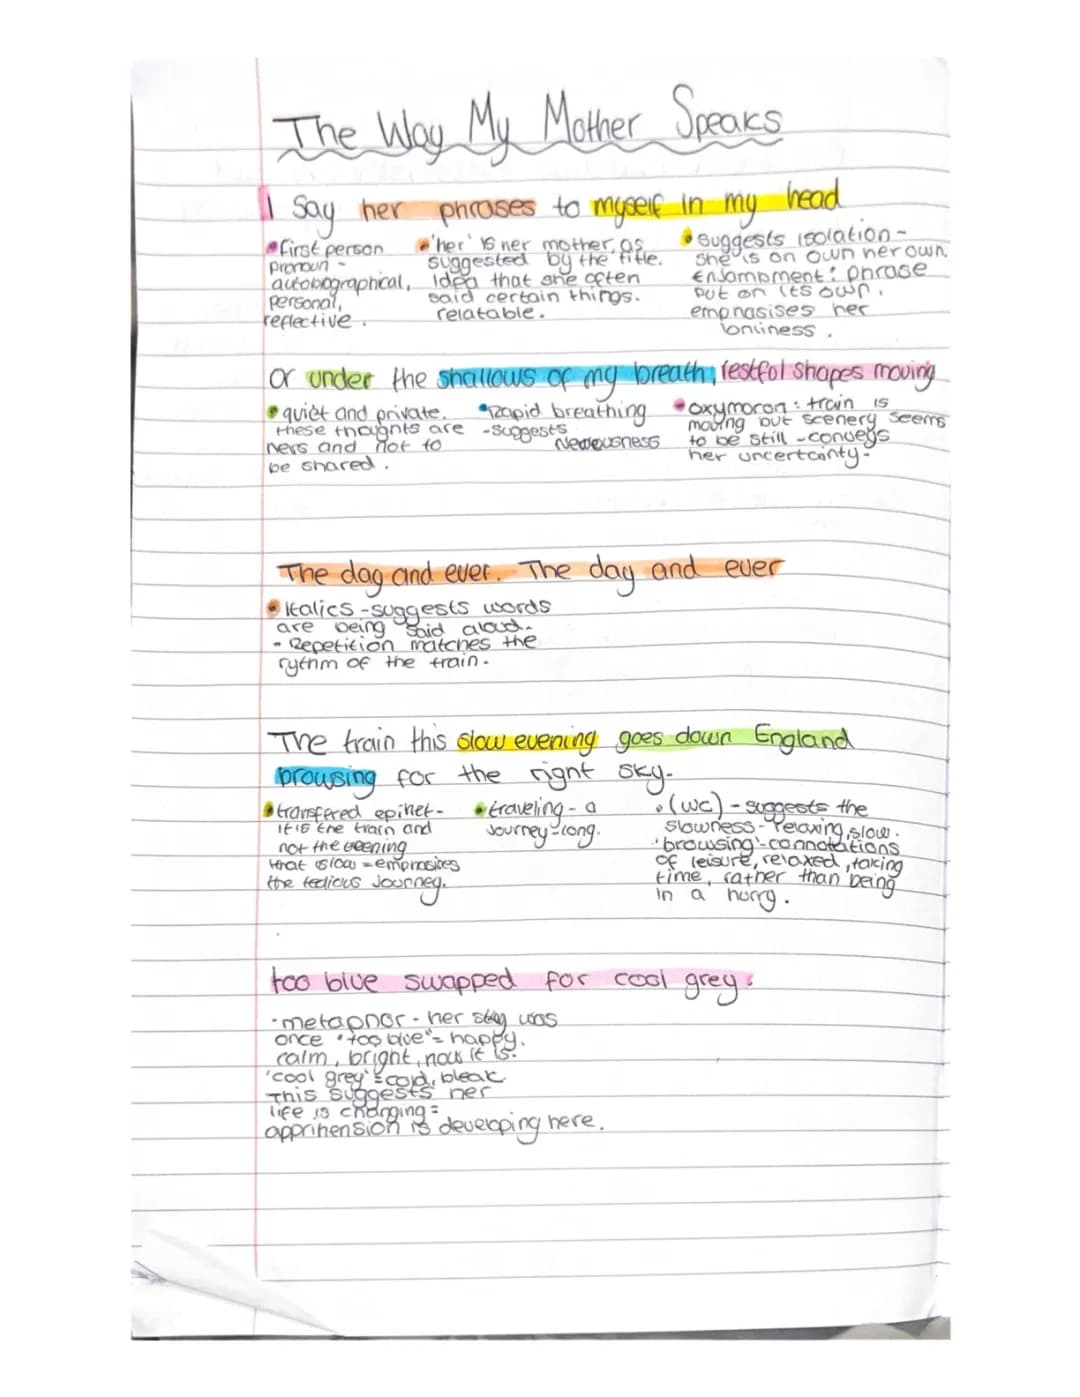 The Way My Mother Speaks
I Say her phrases to myself in my head
•first person
pronoun -
autobiographical,
personal,
reflective.
•'her' is her mother, as
suggested by the title.
Idea that she often
said certain things.
relatable.
•suggests isolation -
she is on own her own.
Enjambment: phrase
put on its own,
emphasises her
lonliness.
Or under the shallows of my breath, restful shapes moving
•quiet and private.
these thoughts are
hers and not to
be shared.
•Rapid breathing
-suggests
Nerveousness
•oxymoron: train is
moving but scenery seems
to be still - conveys
her uncertainty.
The day and ever. The day and ever
•Italics - suggests words
are being said aloud.
- Repetition matches the
rythm of the train.
The train this slow evening goes down England
browsing for the right sky.
•transfered epihet-
it is the train and
not the evening
that is low = emphasizes
the tedious journey.
•traveling - a
Journey - long.
•(WC) - suggests the
slowness - relaxing, slow.
'browsing' - connotations
of leisure, relaxed, taking
time, rather than being
in a hurry.
too blue swapped for cool grey.
·metaphor - her sky was
once "too blue" = happy.
calm, bright, now it is.
'cool grey' = cold, bleak.
This suggests her
life is changing =
apprihension is developing here.